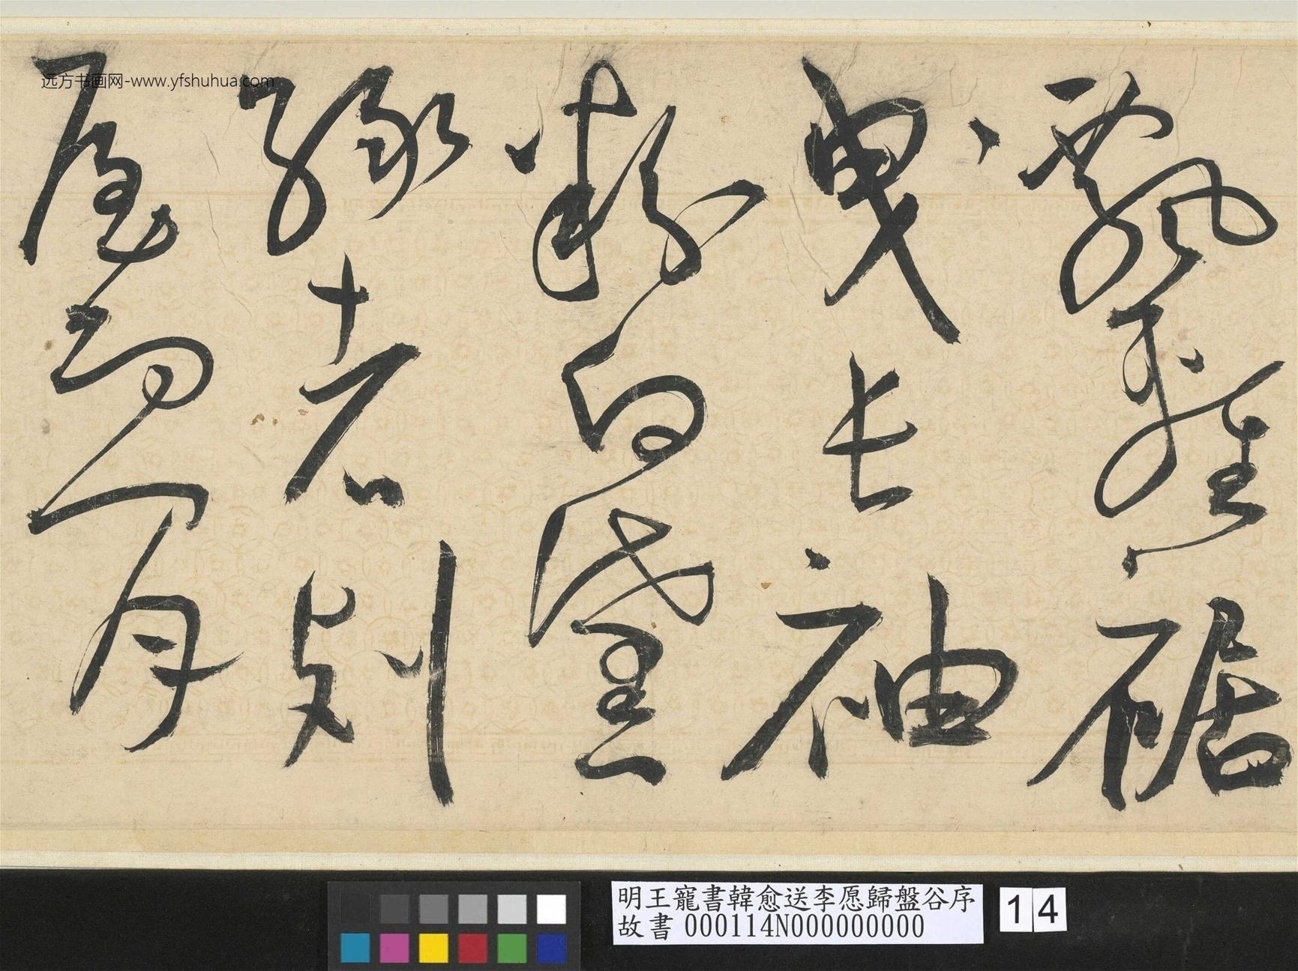 飄輕裾
曳長袖
粉白黛
綠者列
屋而閒
远方书画网-www.yfshuhua.com
明王寵書韓愈送李愿歸盤谷序
故書 000114N000000000
14